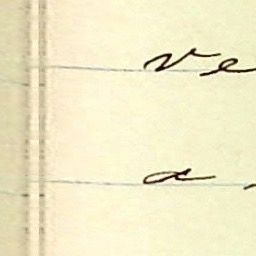 ve
a